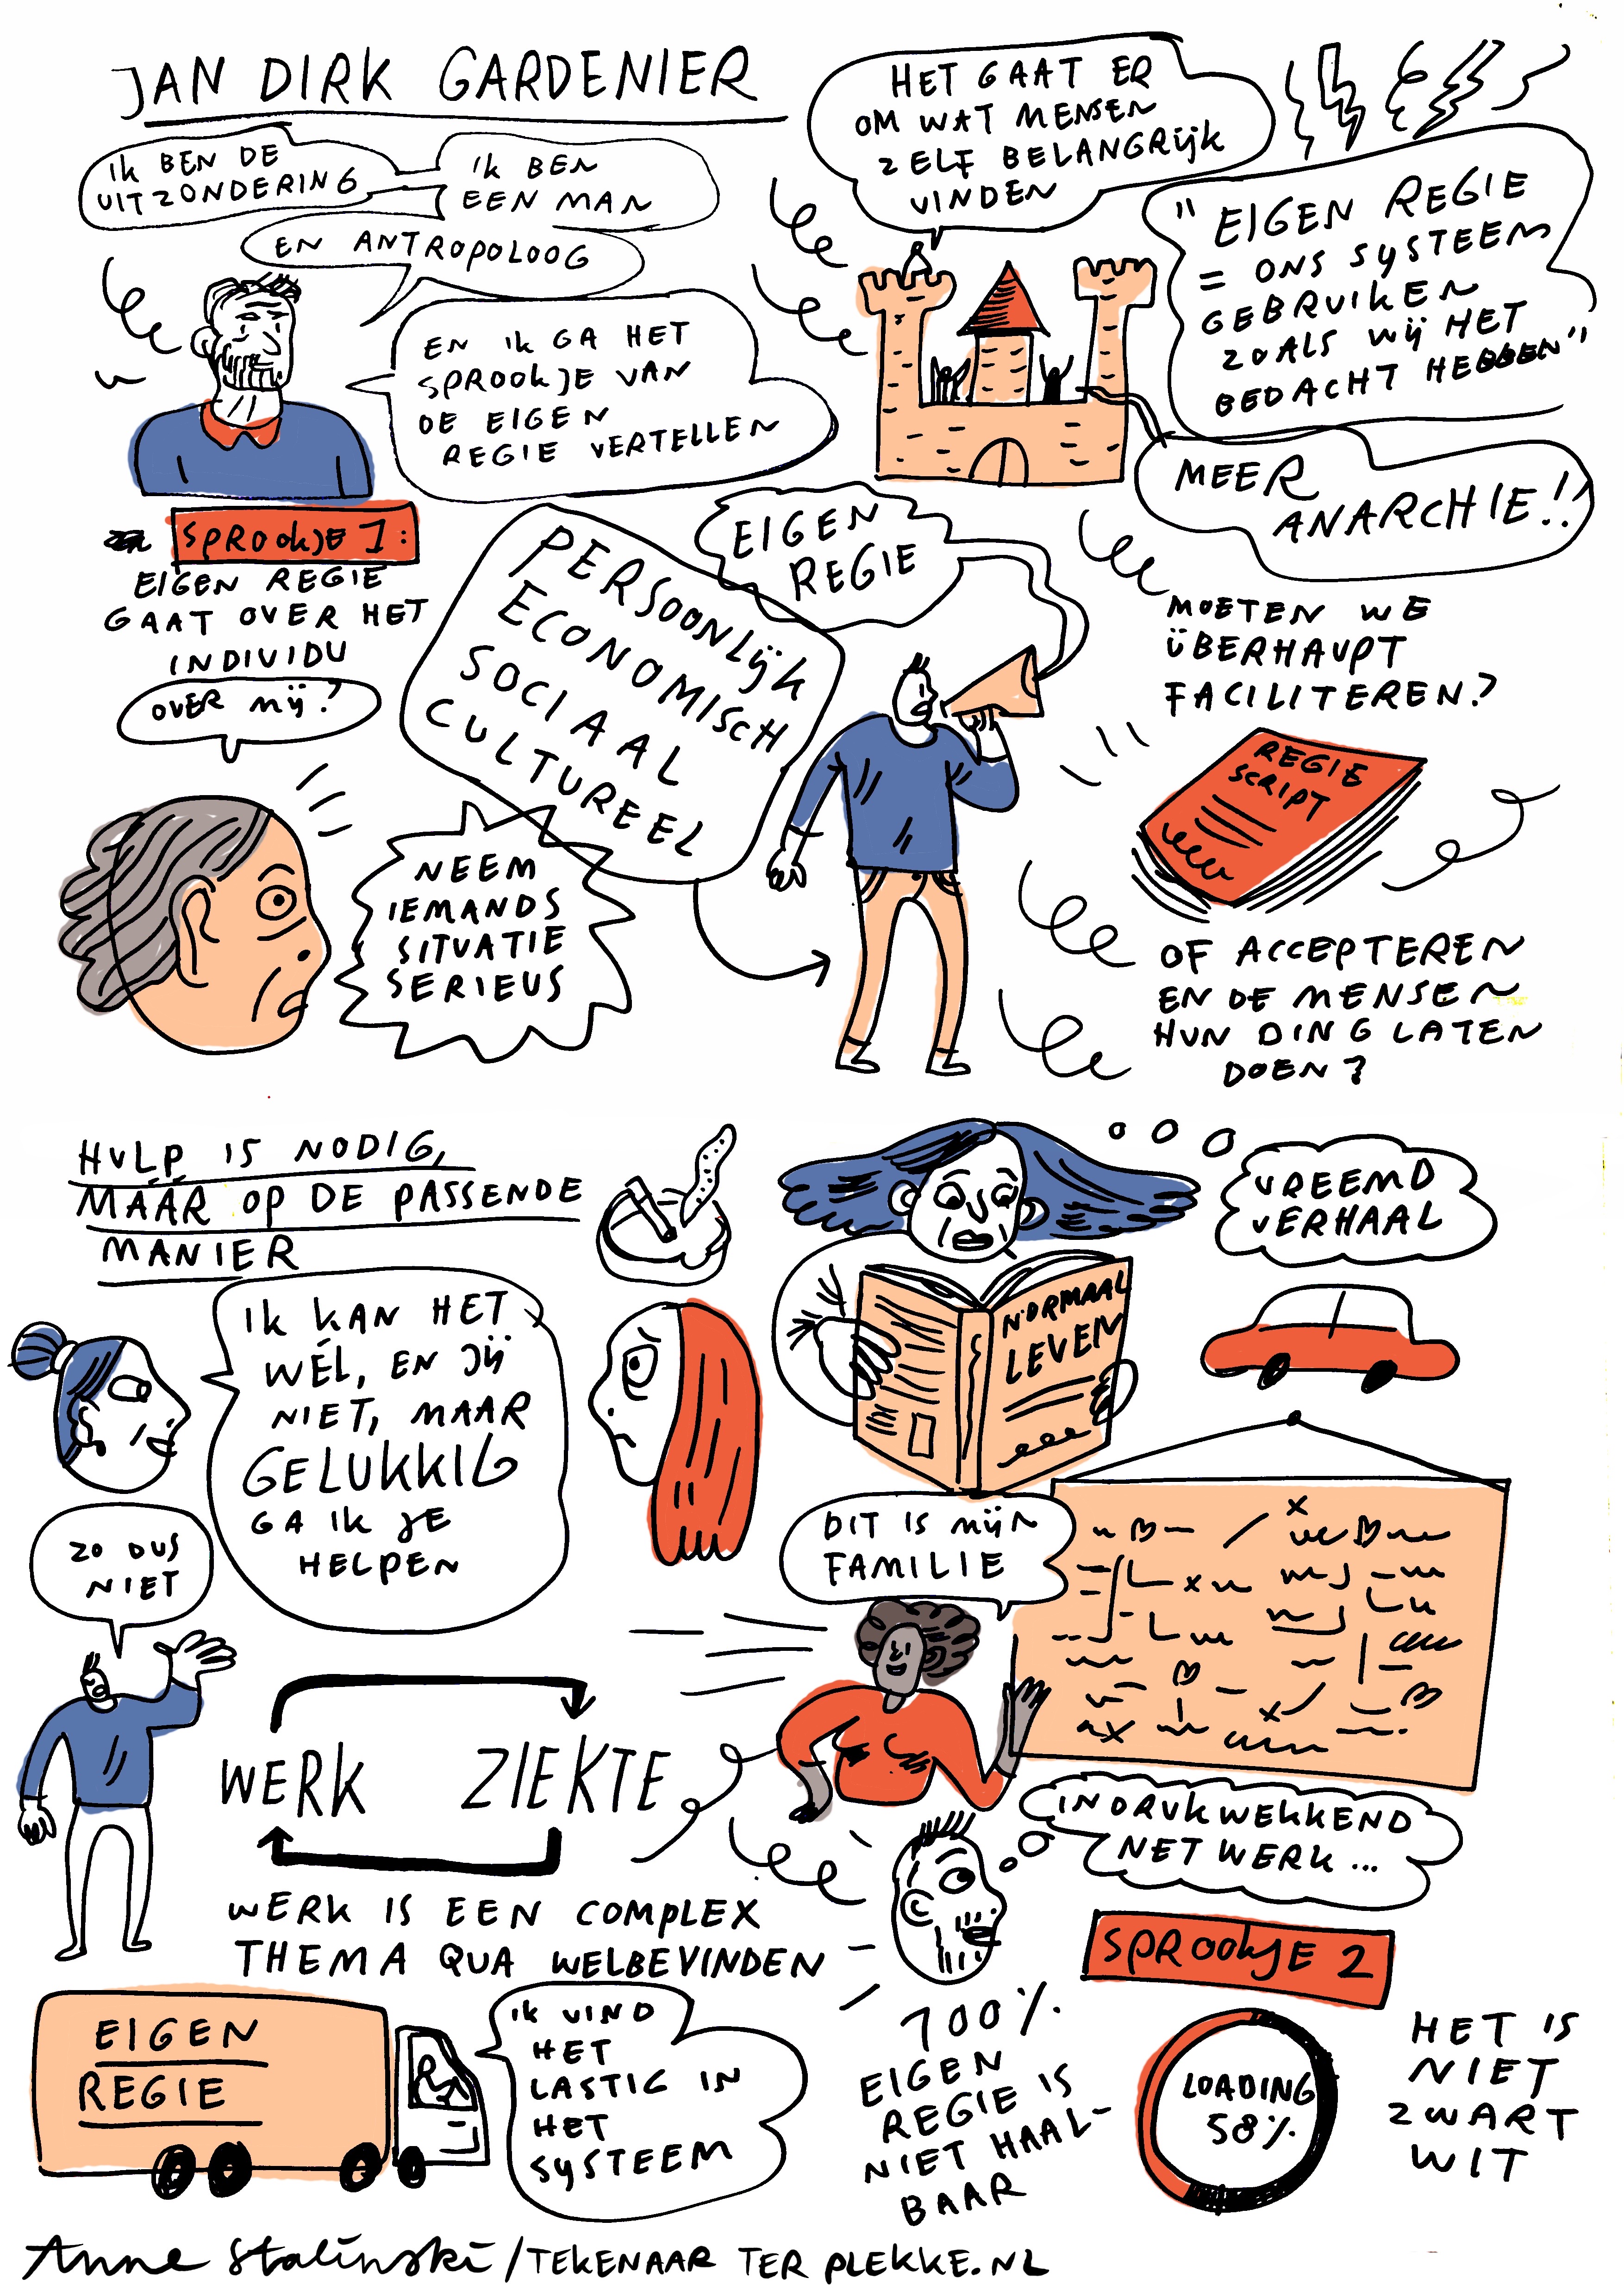 JAN DIRK GARDENIER
IK BEN DE
UITZONDERING
IK BEN
EEN MAN
EN ANTROPOLOOG
EN IK GA HET
SPROOKJE VAN
DE EIGEN
REGIE VERTELLEN
HET GAAT ER
OM WAT MENSEN
ZELF BELANGRIJK
VINDEN
"EIGEN REGIE
= ONS SYSTEEM
GEBRUIKEN
ZOALS WIJ HET
BEDACHT HEBBEN"
MEER
ANARCHIE!!
SPROOKJE 1:
EIGEN REGIE
GAAT OVER HET
INDIVIDU
OVER MIJ?
PERSOONLIJK
ECONOMISCH
SOCIAAL
CULTUREEL
EIGEN
REGIE
NEEM
IEMANDS
SITUATIE
SERIEUS
MOETEN WE
ÜBERHAUPT
FACILITEREN?
REGIE
SCRIPT
OF ACCEPTEREN
EN DE MENSEN
HUN DING LATEN
DOEN?
HULP IS NODIG,
MÁÁR OP DE PASSENDE
MANIER
IK KAN HET
WÉL, EN JIJ
NIET, MAAR
GELUKKIG
GA IK JE
HELPEN
ZO DUS
NIET
VREEMD
VERHAAL
NORMAAL
LEVEN
DIT IS MIJN
FAMILIE
INDRUKWEKKEND
NETWERK...
WERK ZIEKTE
WERK IS EEN COMPLEX
THEMA QUA WELBEVINDEN
EIGEN
REGIE
IK VIND
HET
LASTIG IN
HET
SYSTEEM
SPROOKJE 2
100%
EIGEN
REGIE IS
NIET HAAL-
BAAR
LOADING
58%
HET IS
NIET
ZWART
WIT
Anne Stalinski / TEKENAAR TER PLEKKE.NL